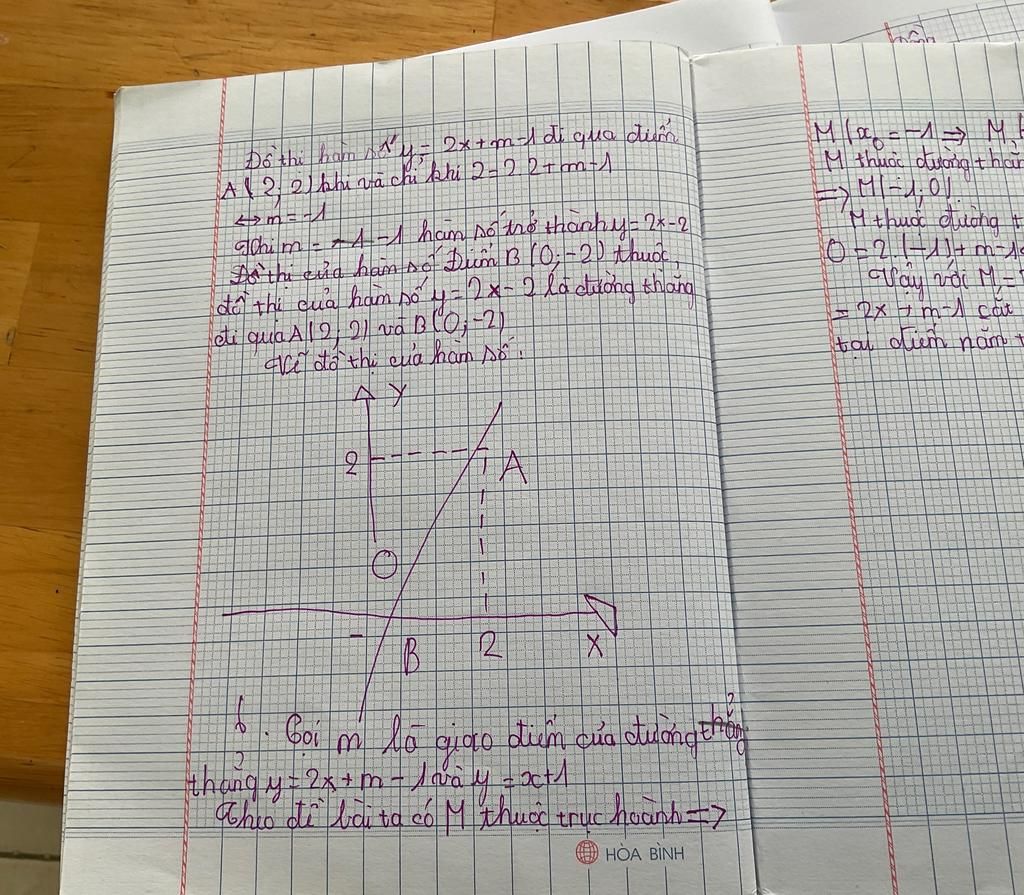 Đồ thị hàm số y = 2x + m - 1 đi qua điểm
A (2; 2) khi và chỉ khi 2 = 2.2 + m - 1
<-> m = -1
Khi m = -1 - 1 hàm số trở thành y = 2x - 2
Đồ thị của hàm số Điểm B (0; -2) thuộc
đồ thị của hàm số y = 2x - 2 là đường thẳng
đi qua A (2; 2) và B (0; -2)
Vẽ đồ thị của hàm số:
Y
2
A
O
-
B
2
X
b. Gọi m là giao điểm của đường thẳng
thẳng y = 2x + m - 1 và y = x + 1
Theo đề bài ta có M thuộc trục hoành =>
M (x₀ = -1 => M
M thuộc đường thẳn
=> M(-1; 0)
M thuộc đường t
0 = 2.(-1) + m - 1
Vậy với M =
= 2x + m - 1 cắt
tại điểm nằm t
HÒA BÌNH